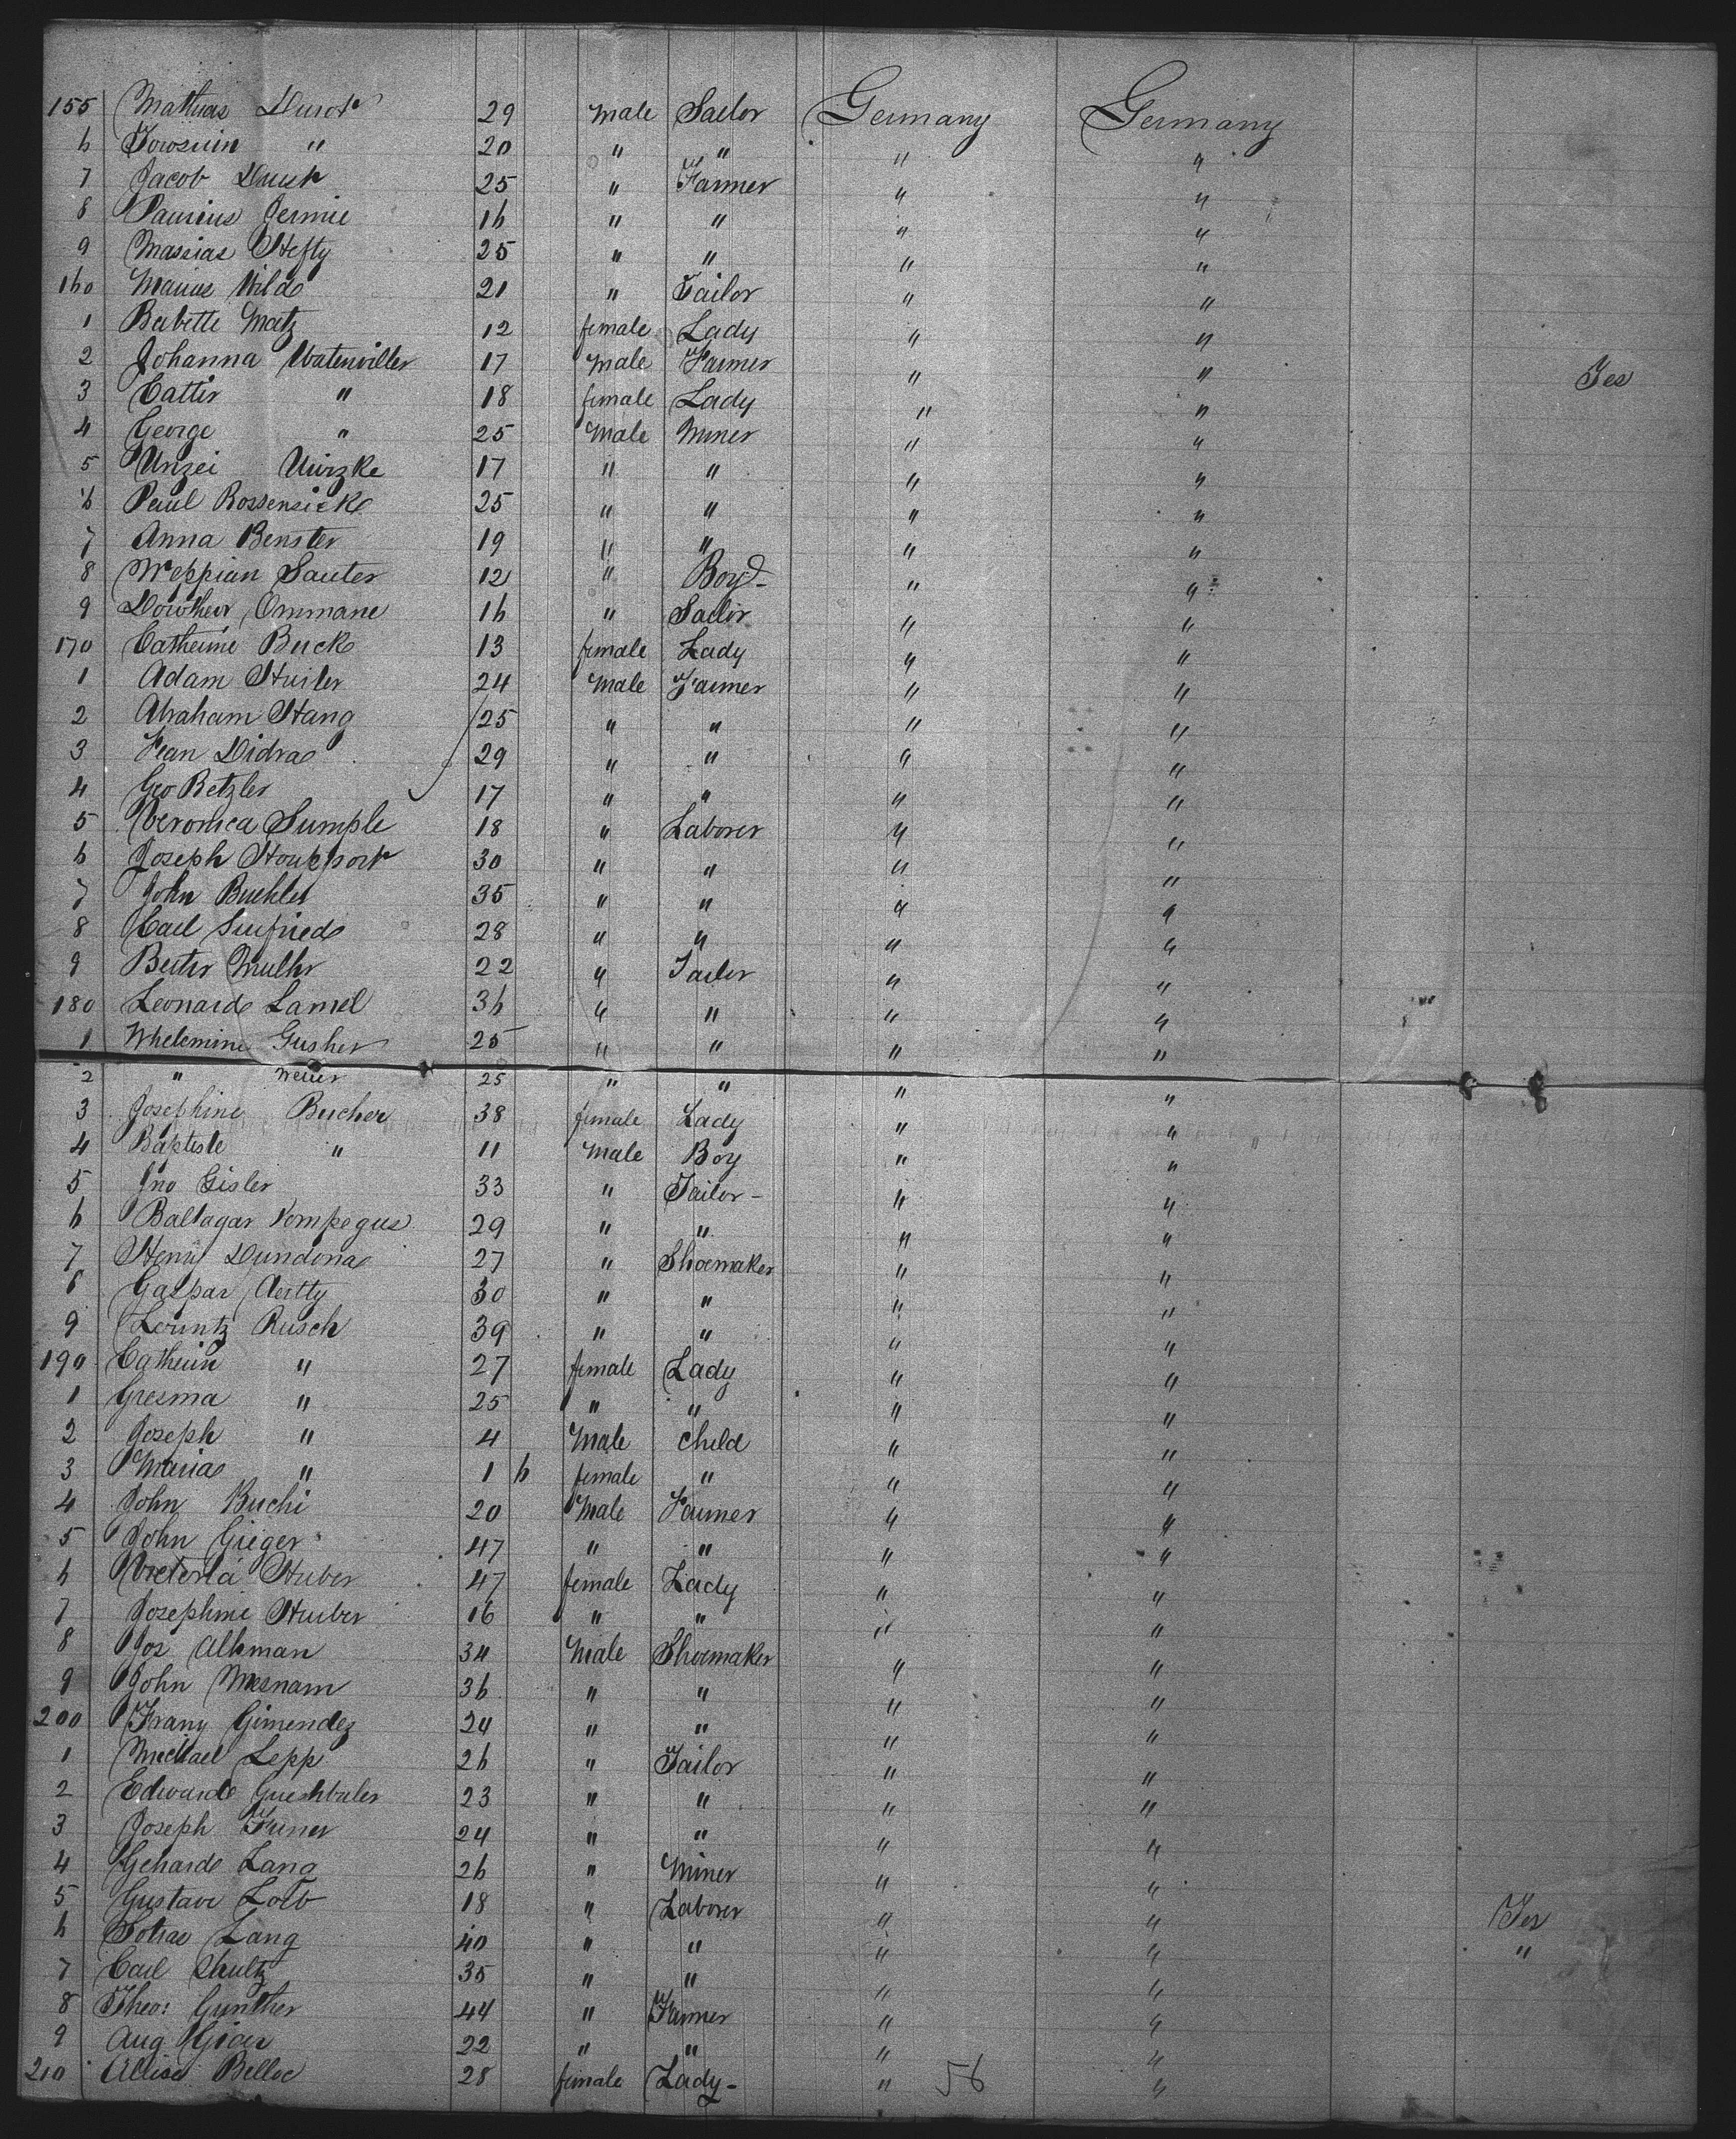 155 Mathias Durst 29 Male Sailor Germany Germany
6 " 20 " " " "
7 Jacob Durst 25 " Farmer " "
8 Jermie 16 " " " "
9 Massias Hefty 25 " " " "
160 Marius Wild 21 " Tailor " "
1 Babette Matz 12 female Lady " "
2 Johanna Watenviller 17 Male Farmer " " Yes
3 Cattir " 18 female Lady " "
4 George " 25 Male Miner " "
5 Unzei 17 " " " "
6 Paul Rossensicke 25 " " " "
7 Anna Benster 19 " " " "
8 Weppian Sauter 12 " Boy - " "
9 Ommane 16 " Sailor " "
170 Catherine Buck 13 female Lady " "
1 Adam 24 Male Farmer " "
2 Abraham Hang 25 " " " "
3 Jean Didra 29 " " " "
4 Geo Betzler 17 " " " "
5 Veronica Sumple 18 " Laborer " "
6 Joseph 30 " " " "
7 John Buehler 35 " " " "
8 Carl Seufried 28 " " " "
9 22 " Tailor " "
180 Leonard Lamel 36 " " " "
1 Whelemine Gusher 25 " " " "
2 " 25 " " " "
3 Josephine Bucher 38 female Lady " "
4 Baptiste " 11 Male Boy " "
5 Jno Gisler 33 " Tailor - " "
6 Baltagar Pompegus 29 " " " "
7 Henry Dundona 27 " Shoemaker " "
8 Gaspar Aertty 30 " " " "
9 Lorintz Rusch 39 " " " "
190 Catherin " 27 female Lady " "
1 Gresma " 25 " " " "
2 Joseph " 4 Male Child " "
3 Maria " 1 6 female " " "
4 John Buchi 20 Male Farmer " "
5 John Gieger 47 " " " "
6 Victoria Huber 47 female Lady " "
7 Josephine Huber 16 " " " "
8 Jos Altman 34 Male Shoemaker " "
9 John Mesnam 36 " " " "
200 Frany Gimendez 24 " " " "
1 Michael Lepp 26 " Tailor " "
2 Edward Gueshbuler 23 " " " "
3 Joseph Furner 24 " " " "
4 Gehard Lang 26 " Miner " "
5 Gustave Loeb 18 " Laborer " " Yes
6 Lang 40 " " " " "
7 Carl Shultz 35 " " " "
8 Theo: Gunther 44 " Farmer " "
9 Aug 22 " " " "
210 Allise Belloc 28 female Lady - " 56 "